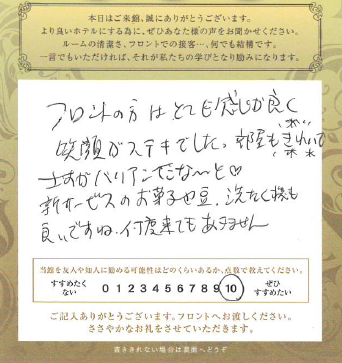 本日はご来館、誠にありがとうございます。
より良いホテルにする為に、ぜひあなた様の声をお聞かせください。
ルームの清潔さ、フロントでの接客…、何でも結構です。
一言でもいただければ、それが私たちの学びとなり励みになります。
フロントの方はとても感じが良く
笑顔がステキでした。部屋もきれいで
さすがバリアンだな〜と♡
新サービスのお菓子や豆、洗たく機も
良いですね。何度来てもあきません
当館を友人や知人に勧める可能性はどのくらいあるか、点数で教えてください。
すすめたくない 0 1 2 3 4 5 6 7 8 9 10 ぜひすすめたい
ご記入ありがとうございます。フロントへお渡しください。
ささやかなお礼をさせていただきます。
書ききれない場合は裏面へどうぞ